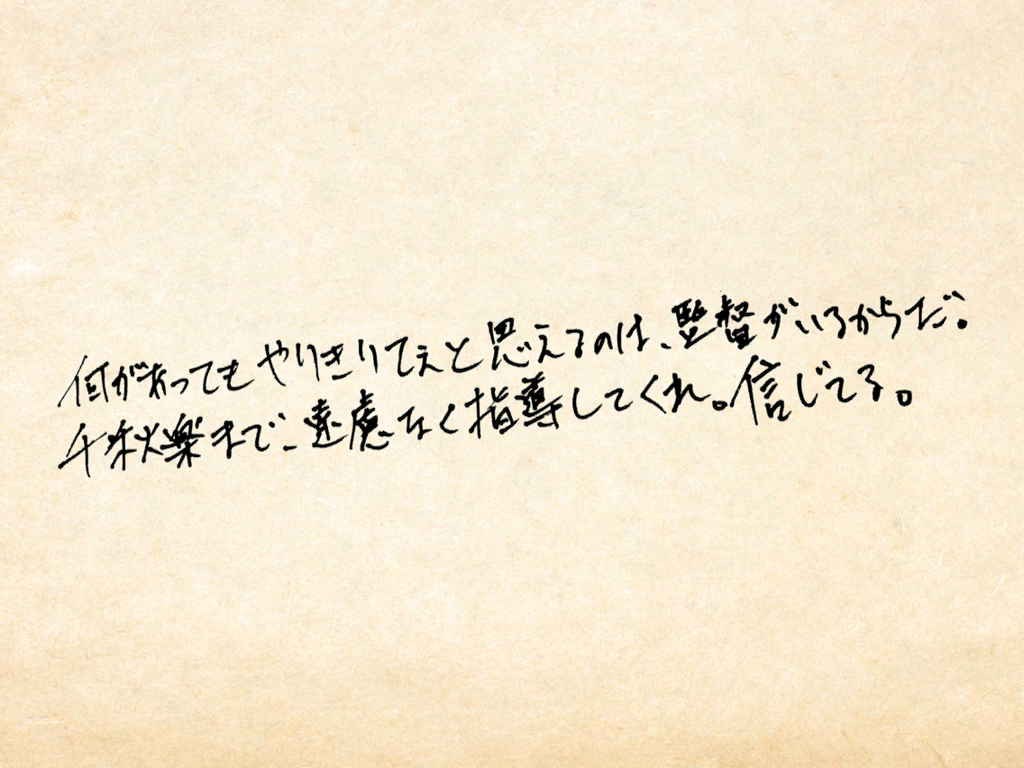 何があってもやりきりてぇと思えるのは、監督がいるからだ。
千秋楽まで、遠慮なく指導してくれ。信じてる。